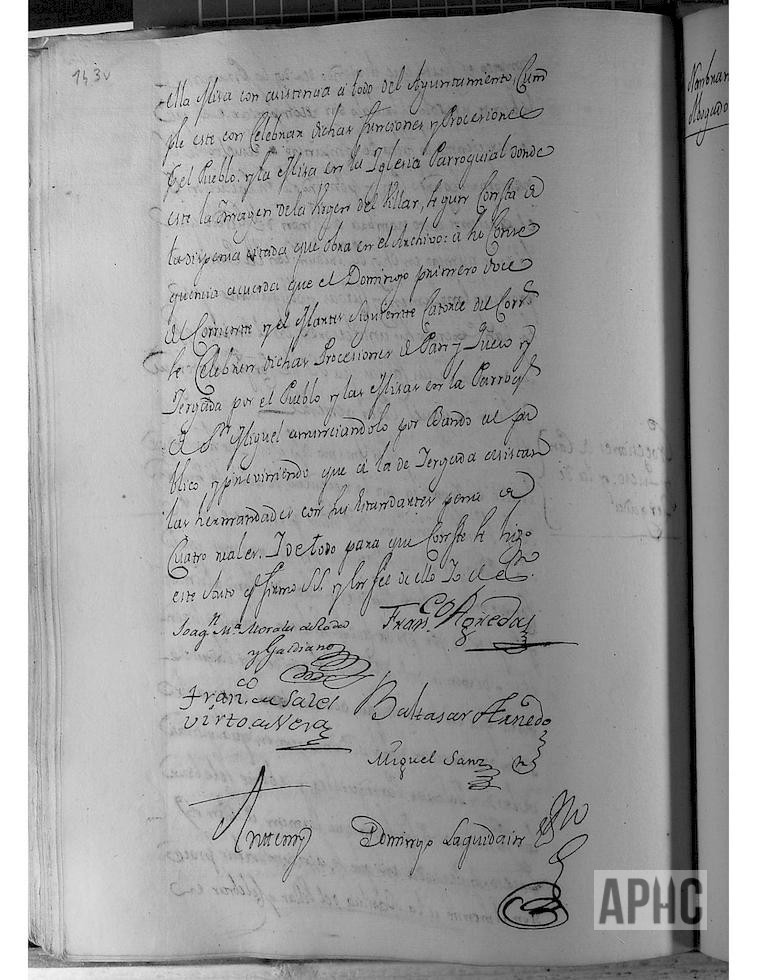 143v
ella Misa con asistencia a todo del Ayuntamiento, Cum
ple este con Celebrar dichas funciones y Procesiones
pel Pueblo: y la Misa en la Iglesia Parroquial donde
este la Imagen de la Virgen del Villar, segun Consta de
la citada que obra en el Archivo: a su Conse
quencia acuerda que el Domingo primero doce
del Corriente y el Martes siguiente Catorce del Corr.te
se Celebren dichas Procesiones de Pan y Queso y
Yergada por el Pueblo y las Misas en la Parroq.l
de S.n Miguel anunciandolo por Bando al pu
blico y previniendo que a la de Yergada asistan
las hermandades con sus Estandartes pena de
Cuatro reales. I de todo para que Conste se hizo
este Auto q.e firmo S.S. y por fee de ello Yo el es.no
Joaq.n M.a Morales de Rada
y Gardiano
Fran.co Agreda
Fran.co de Sales
Virto de Vera
Baltasar Arnedo
Miguel Sanz
Antemi
Domingo Laquidain
Nombram
Abogado
APHC